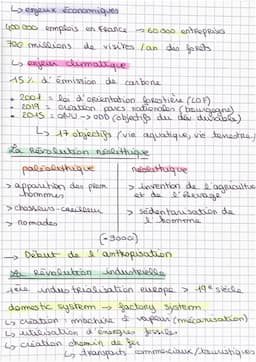 ↳ enjeux économiques
400 000 emplois en France → 60 000 entreprises
700 millions de visites / an des forêts
↳ enjeu climatique
15 % d'émission de carbone
• 2001 = loi d'orientation forestière (LOF)
• 2019 = création parc nationales (bourgogne)
• 2015 = ONU → ODD (objectifs du dév durables)
↳ 17 objectifs (vie aquatique, vie terrestre)
La Révolution néolithique
paléolithique
> apparition des prem hommes
> chasseurs-cueilleurs
> nomades
néolithique
> invention de l'agriculture
et de l'élevage
> sédentarisation de
l'homme
(-9000)
→ Début de l'anthropisation
Révolution industrielle
1ère industrialisation europe > 19e siècle
domestic system → factory system
↳ création machine à vapeur (mécanisation)
↳ utilisation d'énergies fossiles
↳ création chemin de fer
↳ transports commerciaux/touristiques